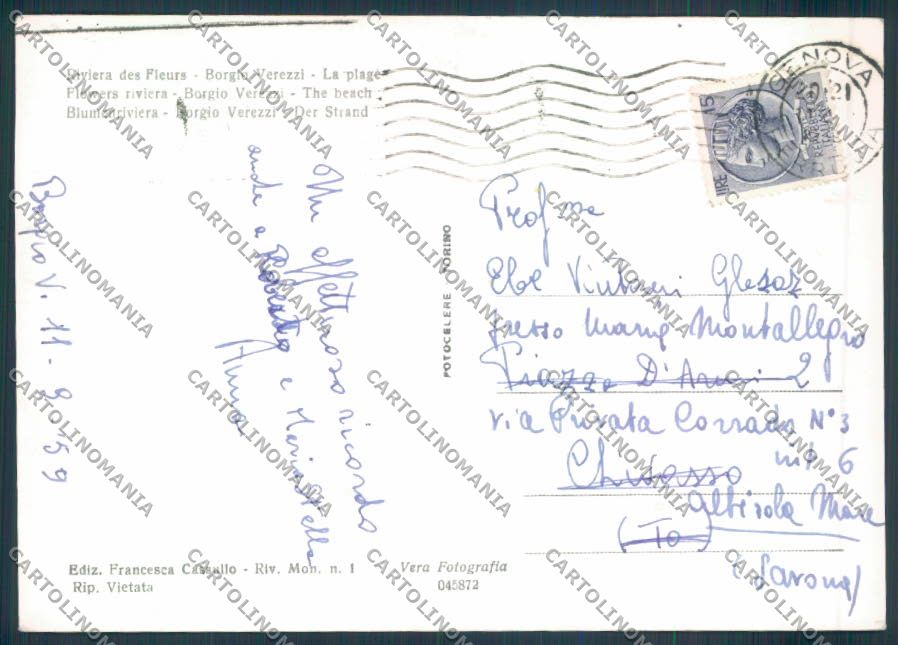 Riviera des Fleurs - Borgio Verezzi - La plage
Flowers riviera - Borgio Verezzi - The beach
Blumenriviera - Borgio Verezzi - Der Strand
Borgio V. 11-8-59
Un affettuoso ricordo
anche a Roberto e Maria Stella
Anna
FOTOCELERE TORINO
GENOVA
21
LIRE 5
Prof ma
presso Mamy Montallegro
Piazza D'Armi 2
via Privata Corrado N° 3
int 6
Chivasso
Albisola Mare
(To)
(Savona)
Ediz. Francesca Casullo - Riv. Mon. n. 1
Rip. Vietata
Vera Fotografia
045872
CARTOLINOMANIA